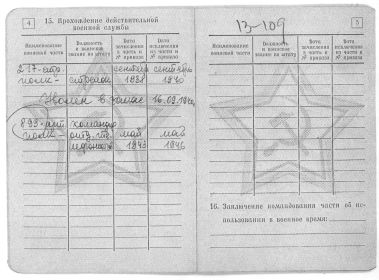 4
15. Прохождение действительной
военной службы
Наименование войсковой части
Должность и воинское звание по штату
Дата зачисления в часть и № приказа
Дата исключения из части и № приказа
217-
полк- стрелок 1938 1940
сентябрь сентябрь
Уволен в запас 16.09.
893-арт. командир
полк- отд. май май
1943 1946
13-109
5
Наименование войсковой части
Должность и воинское звание по штату
Дата зачисления в часть и № приказа
Дата исключения из части и № приказа
16. Заключение командования части об ис-
пользовании в военное время: